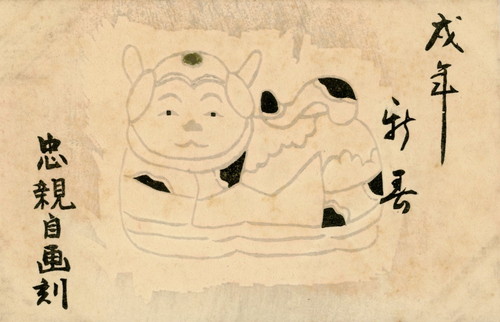 戌年
新春
忠親自画刻